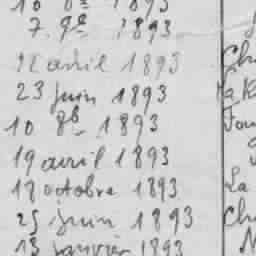 10 8e 1893
7. 9e 1893
12 avril 1893
23 juin 1893
10 8b 1893
19 avril 1893
18 octobre 1893 La
25 juin 1893
13 janvier 1893